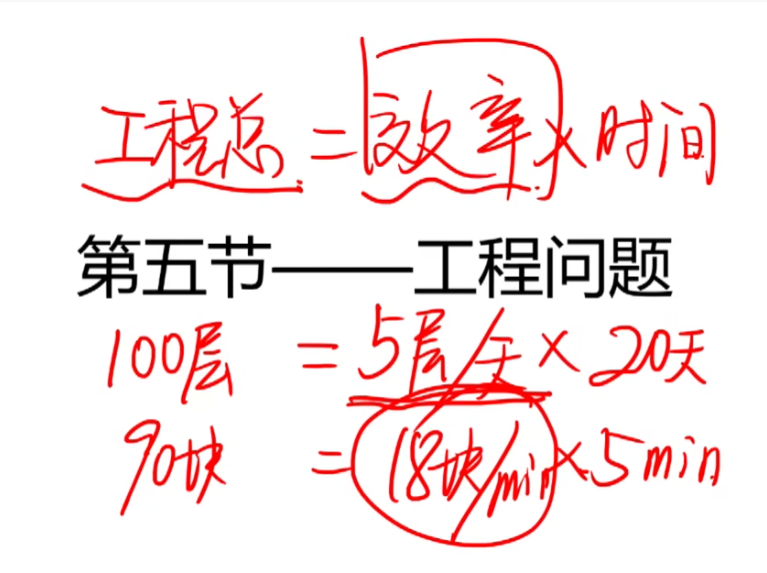 工程总=效率×时间
第五节——工程问题
100层=5层/天×20天
90块=18块/min×5min